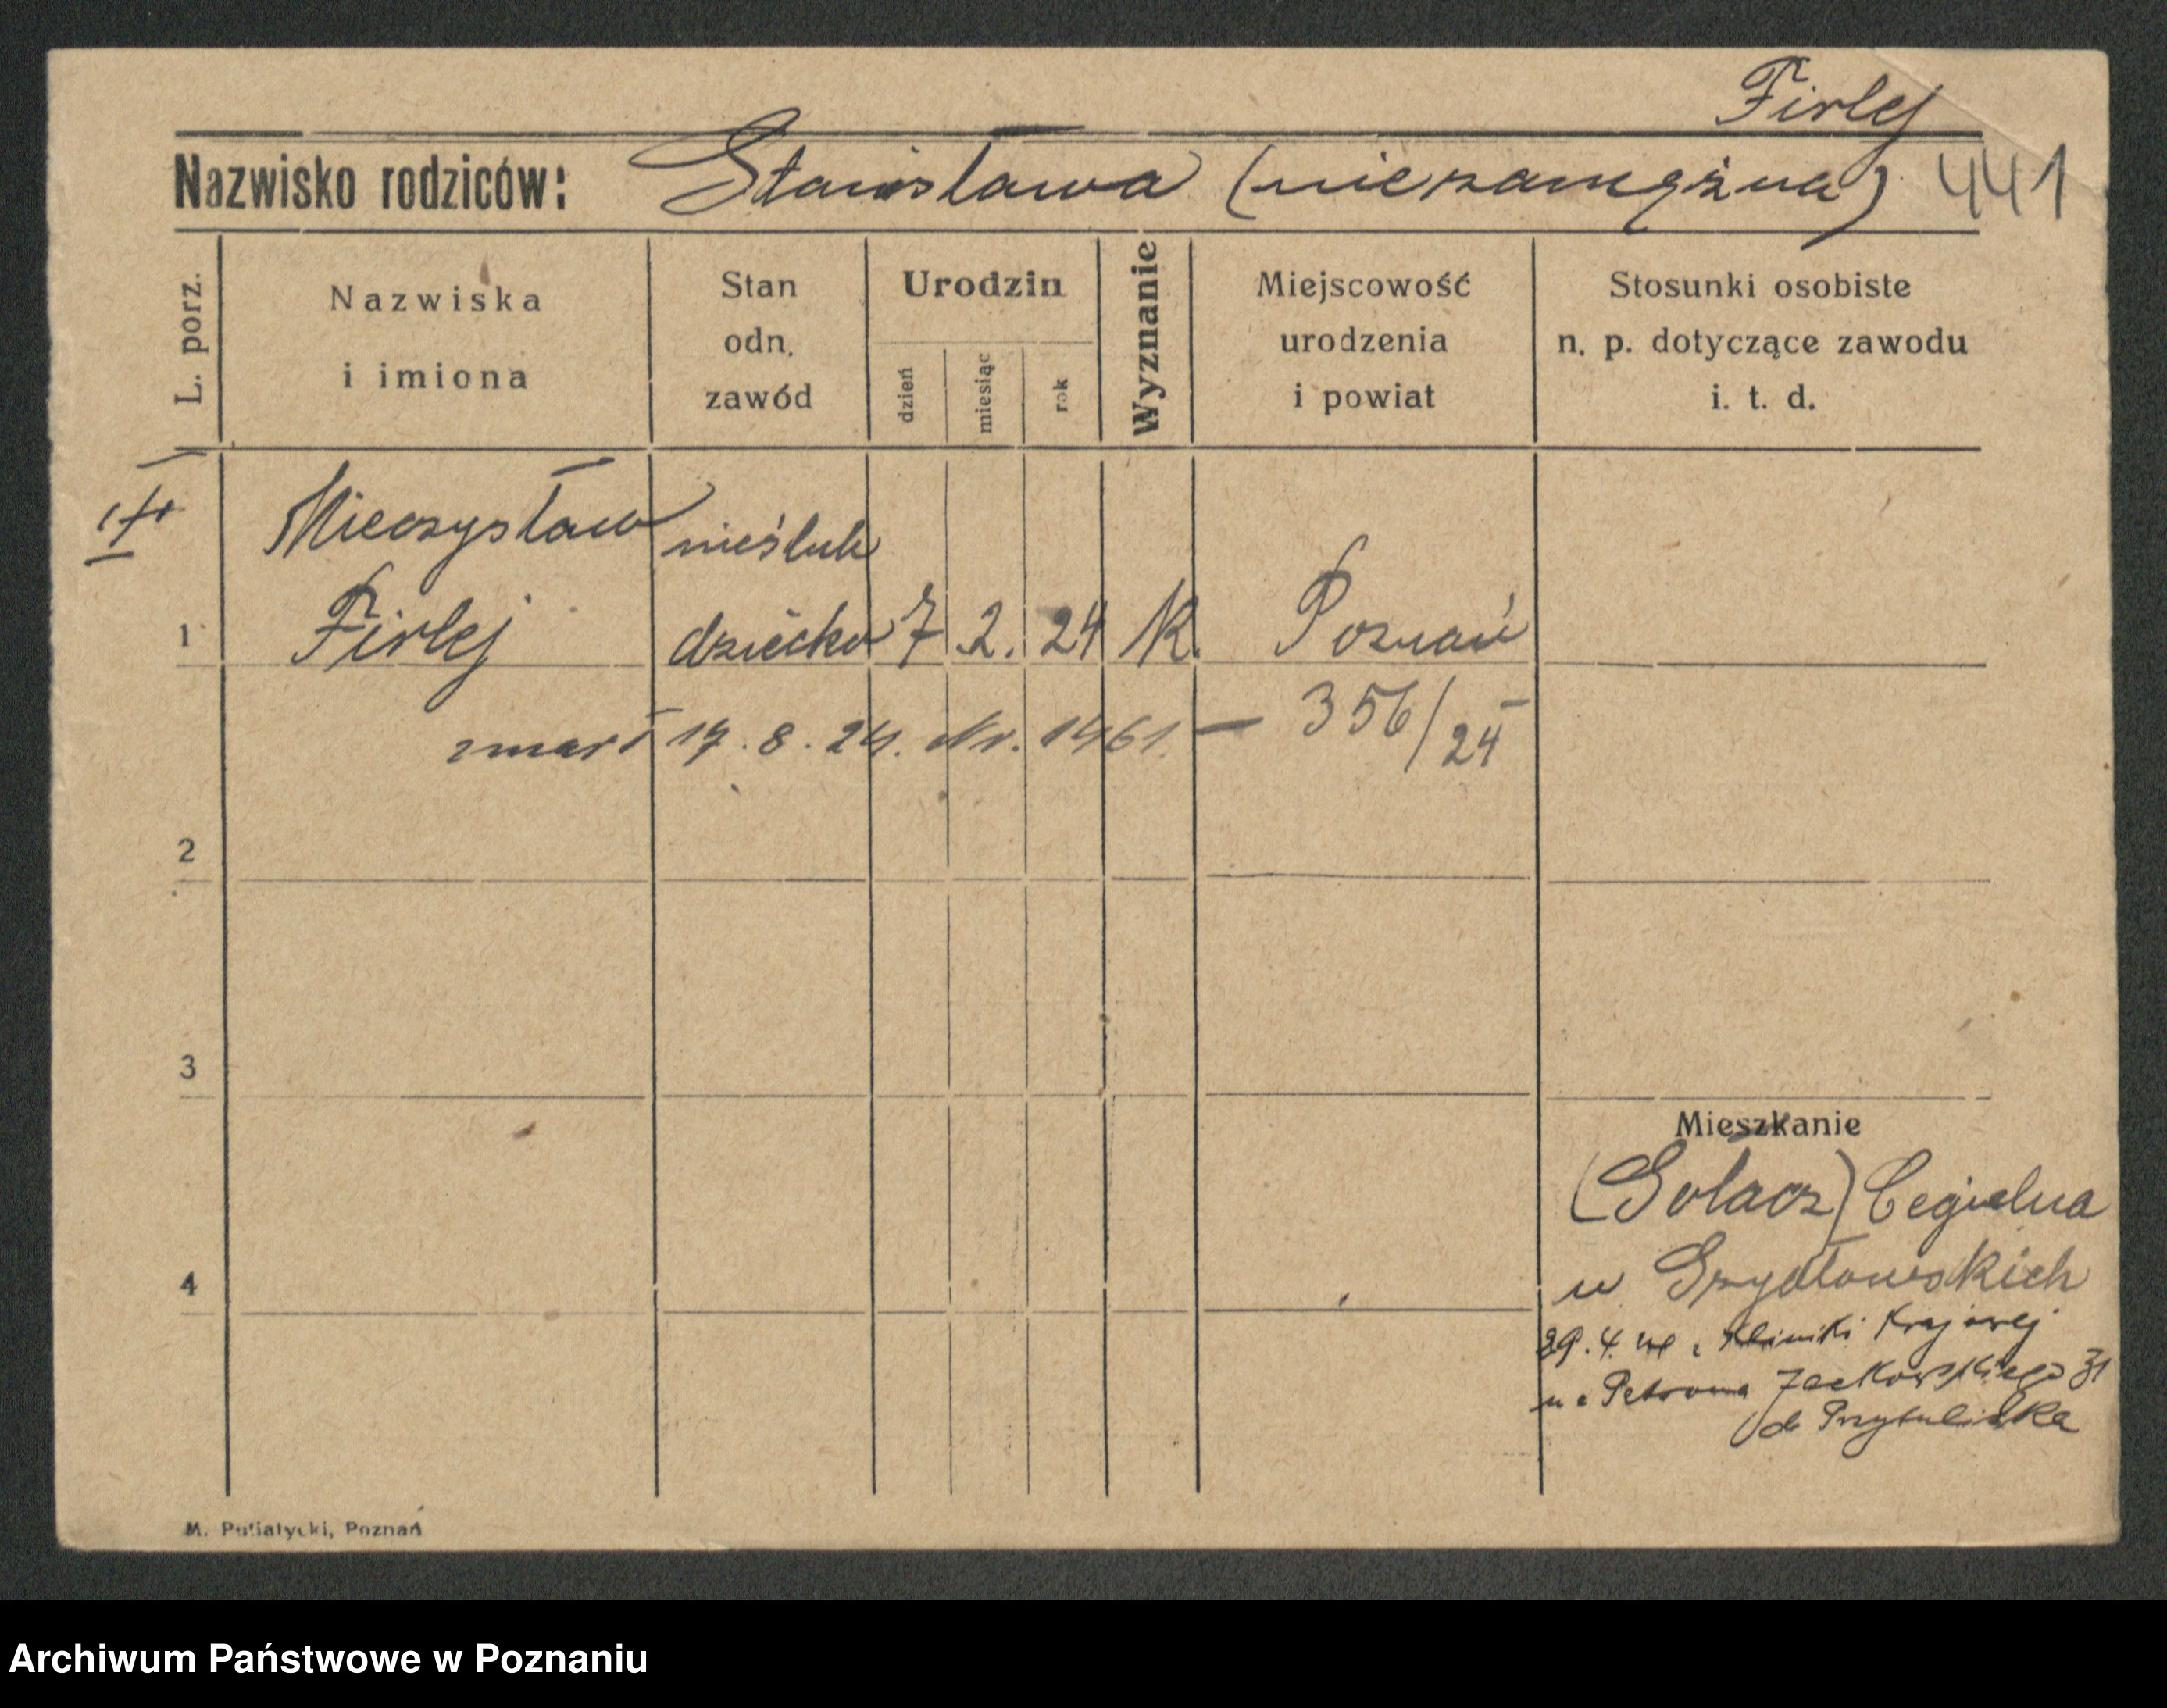 Firlej
Nazwisko rodziców: Stanisława (niezamężna) 441
L. porz.
Nazwiska
i imiona
Stan
odn.
zawód
Urodzin
dzień
miesiąc
rok
Wyznanie
Miejscowość
urodzenia
i powiat
Stosunki osobiste
n. p. dotyczące zawodu
i. t. d.
Mieczysław nieślub
1 Firlej dziecko 7 2. 24 K. Poznań
zmarł 17.8.24. Nr. 1461 — 356/24
2
3
Mieszkanie
(Solacz) Cegielna
4
u
29.4. Kliniki Krajowej
na Patrona Jackowskiego 31
do
M. Putiatycki, Poznań
Archiwum Państwowe w Poznaniu